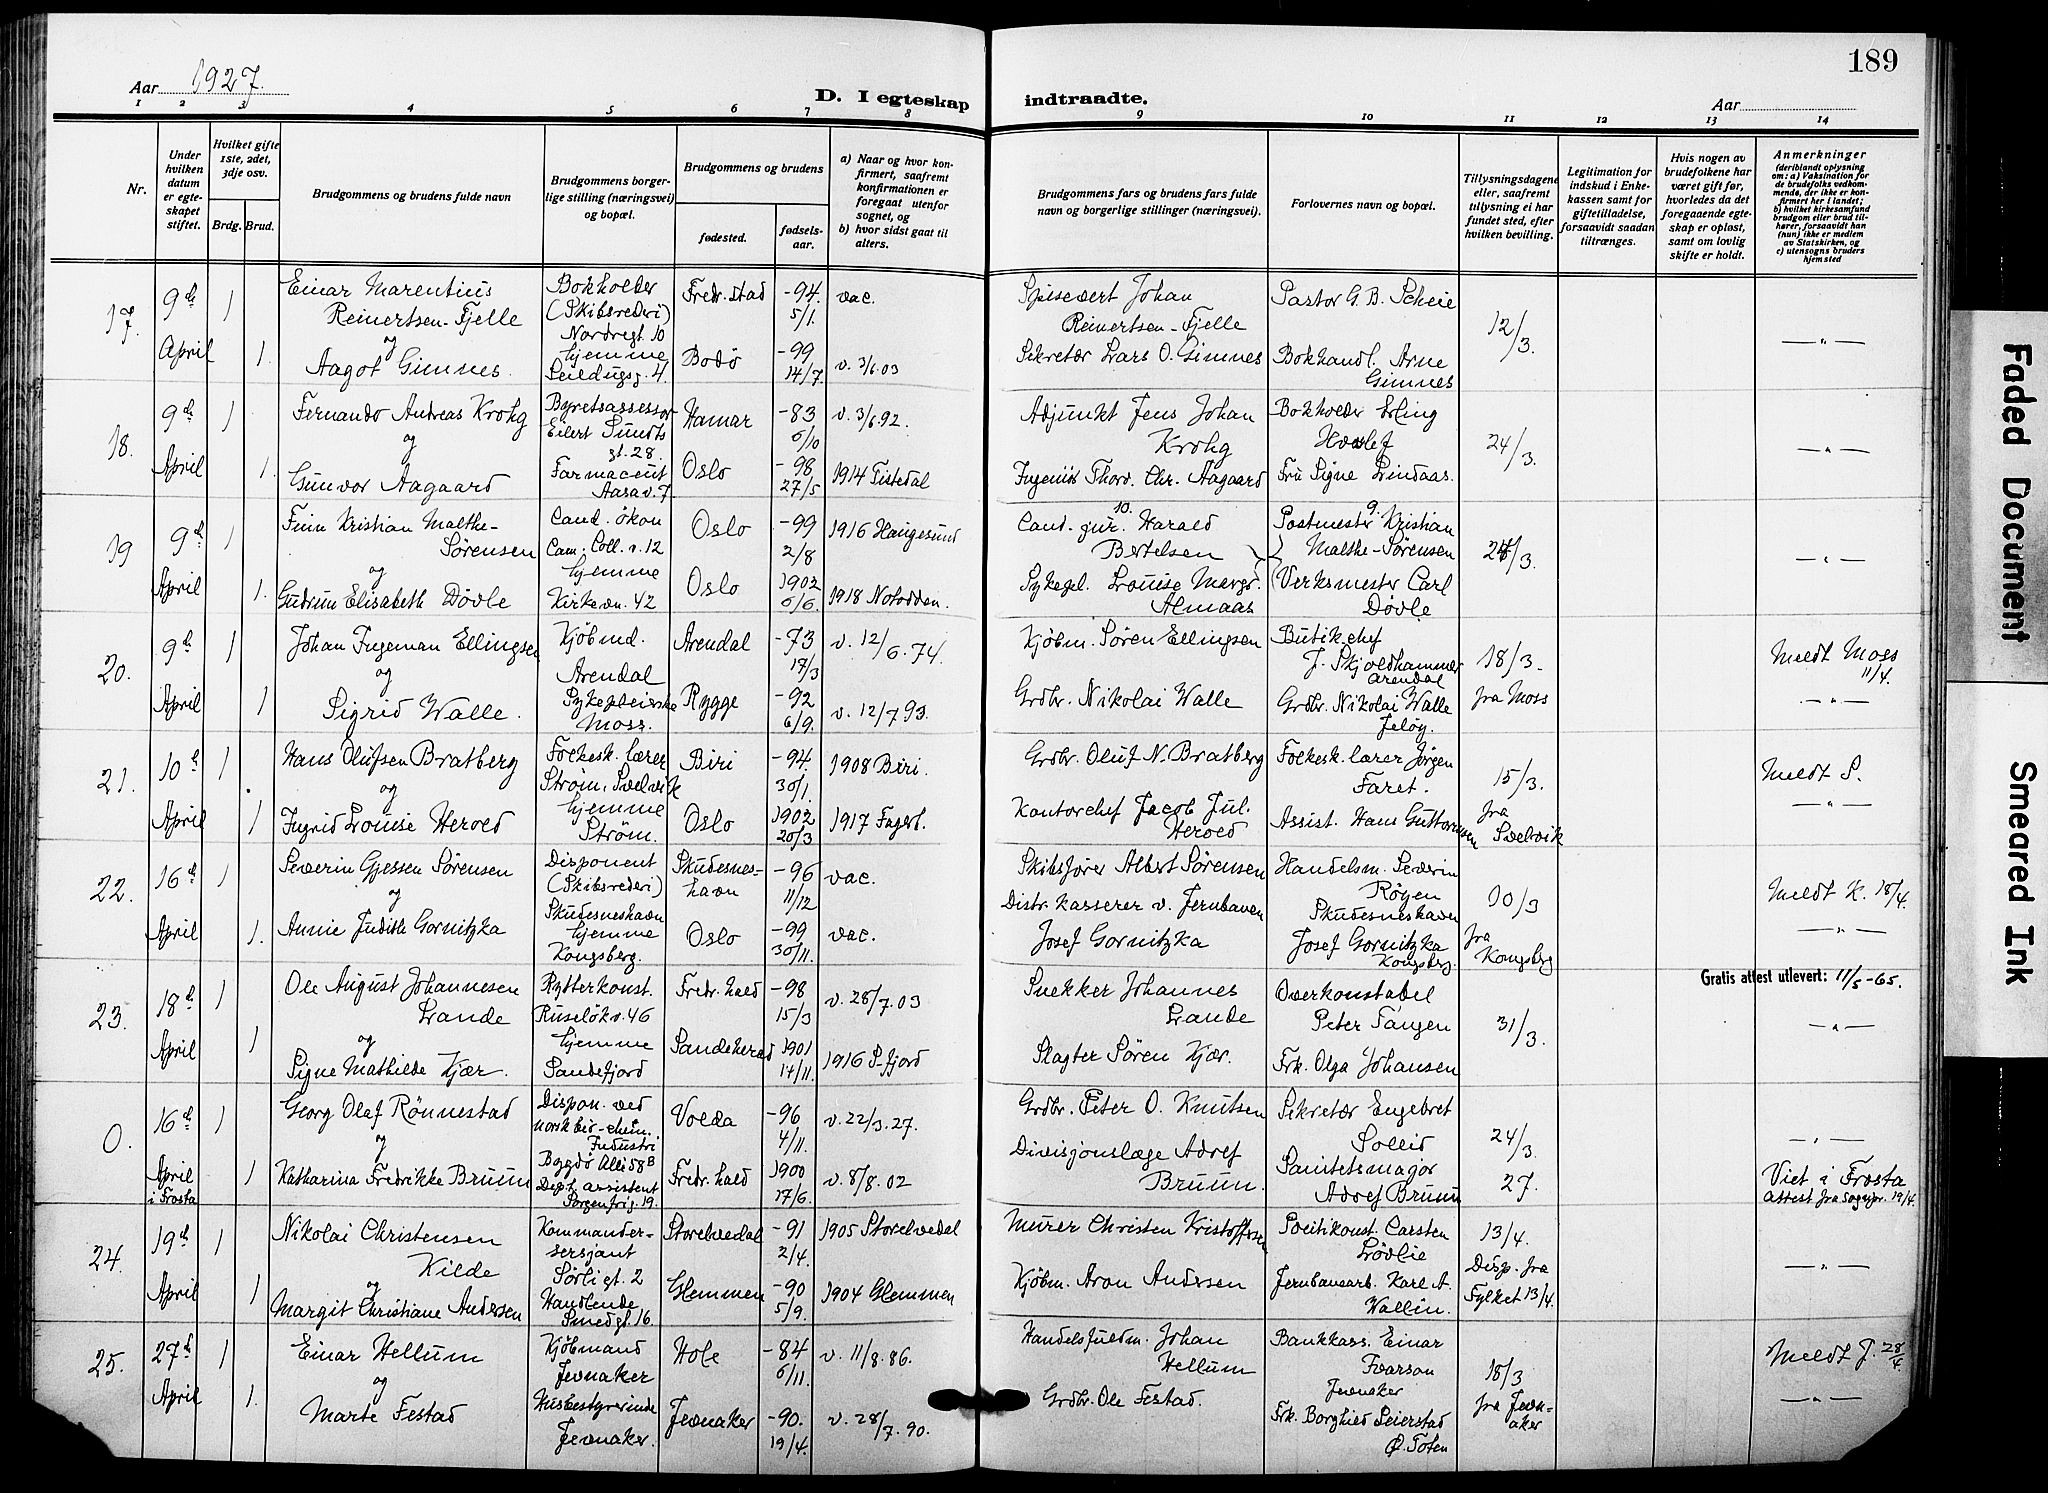 189
Aar 1927.
D. I egteskap indtraadte.
Aar
1 2 3 4 5 6 7 8 9 10 11 12 13 14
Nr.
Under hvilken datum er egteskapet stiftet.
Hvilket gifte 1ste, 2det, 3dje osv.
Brdg. Brud.
Brudgommens og brudens fulde navn
Brudgommens borgerlige stilling (næringsvei) og bopæl.
Brudgommens og brudens
fødested.
fødselsaar.
a) Naar og hvor konfirmert, saafremt konfirmationen er foregaat utenfor sognet, og
b) hvor sidst gaat til alters.
Brudgommens fars og brudens fars fulde navn og borgerlige stillinger (næringsvei).
Forlovernes navn og bopæl.
Tillysningsdagene eller, saafremt tillysning ei har fundet sted, efter hvilken bevilling.
Legitimation for indskud i Enkekassen samt for giftetilladelse, forsaavidt saadan tiltrænges.
Hvis nogen av brudefolkene har været gift før, hvorledes da det foregaaende egteskap er opløst, samt om lovlig skifte er holdt.
Anmerkninger
(deriblandt oplysning om: a) Vaksination for de brudefolks vedkommende, der ikke er konfirmert her i landet;
b) hvilket kirkesamfund brudgom eller brud tilhører, forsaavidt han (hun) ikke er medlem av Statskirken, og
c) utensogns bruders hjemsted
17. 9de April 1 Einar Marentius Reinertsen-Fjelle Bokholder (Skibsrederi) Nordregt. 10 Fredr.stad -94. 5/1. vac. Spisevert Johan Reinertsen-Fjelle Pastor G. B. Scheie 12/3. — " —
og
1. Aagot Gimnes. hjemme Seildugsg. 4. Bodö -99 14/7. v. 3/6.03 Sekretær Lars O. Gimnes Bokhandl. Arne Gimnes
18. 9de April 1 Fernando Andreas Krohg Byretsassessor Eilert Sundts gt. 28. Hamar -83 6/10 v. 3/6.92. Adjunkt Jens Johan Krohg Bokholder Erling 24/3. — " —
og
1. Gunvor Aagaard Farmaceut Aasav. 7 Oslo -98 27/5 1914 Tistedal Ingeniör Thorv. Chr. Aagaard Fru Signe Lindaas.
19 9de April 1 Finn Kristian Malthe-Sørensen Cand. ökon Cam. Coll. v. 12 Oslo -99 2/8 1916 Haugesund 10. Cand. jur. Harald Bertelsen 9. Postmester Kristian Malthe-Sørensen 24/3. — " —
og
1. Gudrun Elisabeth Dövle hjemme Kirkevn. 42 Oslo 1902 6/6. 1918 Notodden. Sykepl. Louise Margr. Almaas Verksmester Carl Dövle
20. 9de April 1 Johan Ingeman Ellingsen Kjöbmd. Arendal Arendal -73 17/3 v. 12/6.74. Kjöbm. Sören Ellingsen Butikchef J. Skjoldhammer Arendal 18/3- Meldt Moss 11/4.
og
1 Sigrid Walle. Sykepleierske Moss. Rygge -92 6/9. v. 12/7 93. Grdbr. Nikolai Walle Grdbr. Nikolai Walle Jelöy. fra Moss — " —
21. 10de April 1 Hans Olufsen Bratberg Folkesk. lærer Ström, Svelvik Biri -94. 30/1. 1908 Biri. Grdbr. Oluf N. Bratberg Folkesk. lærer Jörgen Faret. 15/3. Meldt S.
og
1 Ingrid Louise Herold hjemme Ström. Oslo 1902 20/3 1917 Fagerb. Kontorchef Jacob Jul. Herold Assist. Hans Guttormsen fra Svelvik — " —
22. 16de April 1 Severin Gjessen Sørensen Disponent (Skibsrederi) Skudesneshavn Skudesneshavn -96 11/12 vac. Skibsfører Albert Sørensen Handelsm. Severin Röyen Skudesneshavn 10/3 Meldt K. 18/4.
og
1. Annie Judith Gornitzka hjemme Kongsberg. Oslo -99 30/11. vac. Distr. kasserer v. Jernbanen Josef Gornitzka Josef Gornitzka Kongsberg. fra Kongsberg — " —
23. 18de April 1 Ole August Johannesen Lande Rytterkonst. Ruselökv. 46 Fredr.hald -98 15/3 v. 28/7.03 Snekker Johannes Lande Overkonstabel Peter Tangen 31/3. Gratis attest utlevert: 11/5-65.
og
1 Signe Mathilde Kjær. hjemme Sandefjord Sandeherad 1901 14/11. 1916 S-fjord Slagter Sören Kjær. Frk. Olga Johansen — " —
0. 16de April i Frosta 1 Georg Olaf Rönnestad Dispon. ved Norsk bio-chem. Industri Bygdö Allé 58B Volda -96 4/11. v. 22/3.27. Grdbr. Peter O. Knutsen Sekretær Engebret Sollid 24/3. 27. — " —
og
1 Katharina Fredrikke Bruun Dept. assistent Sorgenfrig. 19. Fredr.hald 1900 17/6. v. 8/8.02 Divisjonslæge Adolf Bruun. Sanitetsmajor Adolf Bruun Viet i Frosta Attest fra Sognepr. 19/4.
24. 19de April 1 Nikolai Christensen Kilde Kommandersersjant Sörligt. 2 Storelvedal -91 2/4. 1905 Storelvedal Murer Christen Kristoffersen Politikonst. Carsten Lövlie 13/4. — " —
og
1 Margit Christiane Andersen Handlende Smedgt. 16. Glemmen -90 5/9. 1904 Glemmen Kjöbm. Aron Andersen Jernbanearb. Karl A. Wallin. Disp. fra Fylket 13/4.
25. 27de April 1 Einar Hellum Kjöbmand Jevnaker Hole -84 6/11. v. 11/8.86. Handelsfuldm. Johan Hellum Bankkass. Einar Ivarson Jevnaker 18/3 Meldt J. 28/4
og
1. Marte Festad Husbestyrerinde Jevnaker. Jevnaker -90. 19/4. v. 28/7.90. Grdbr. Ole Festad. Frk. Borghild Seierstad Ø. Toten fra Jevnaker — " —
Faded Document
Smeared Ink